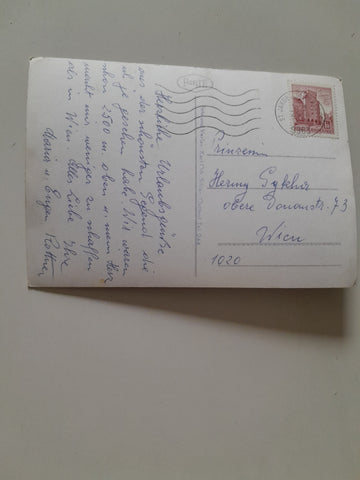 Herzliche Urlaubsgrüße
aus der schönsten Gegend die
ich je gesehen hab. Wir waren
schon 2500 m oben u. mein Herz
macht mir weniger zu schaffen
als in Wien. Alles Liebe Ihre
Maria u. Eugen
Prinzessin
Obere Donaustr. 73
Wien
1020